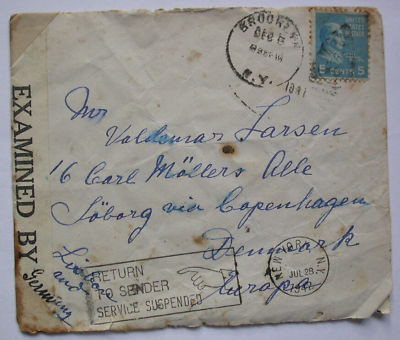 BROOKLYN
DEC 8
N.Y.
1941
UNITED
STATES
5 CENTS 5
EXAMINED BY
Mr
Valdemar Larsen
16 Carl Möllers Alle
Söborg via Copenhagen
Denmark
Europa
Lisbon
and
Germany
RETURN
TO SENDER
SERVICE SUSPENDED
NEW YORK, N.Y.
JUL 28
1942